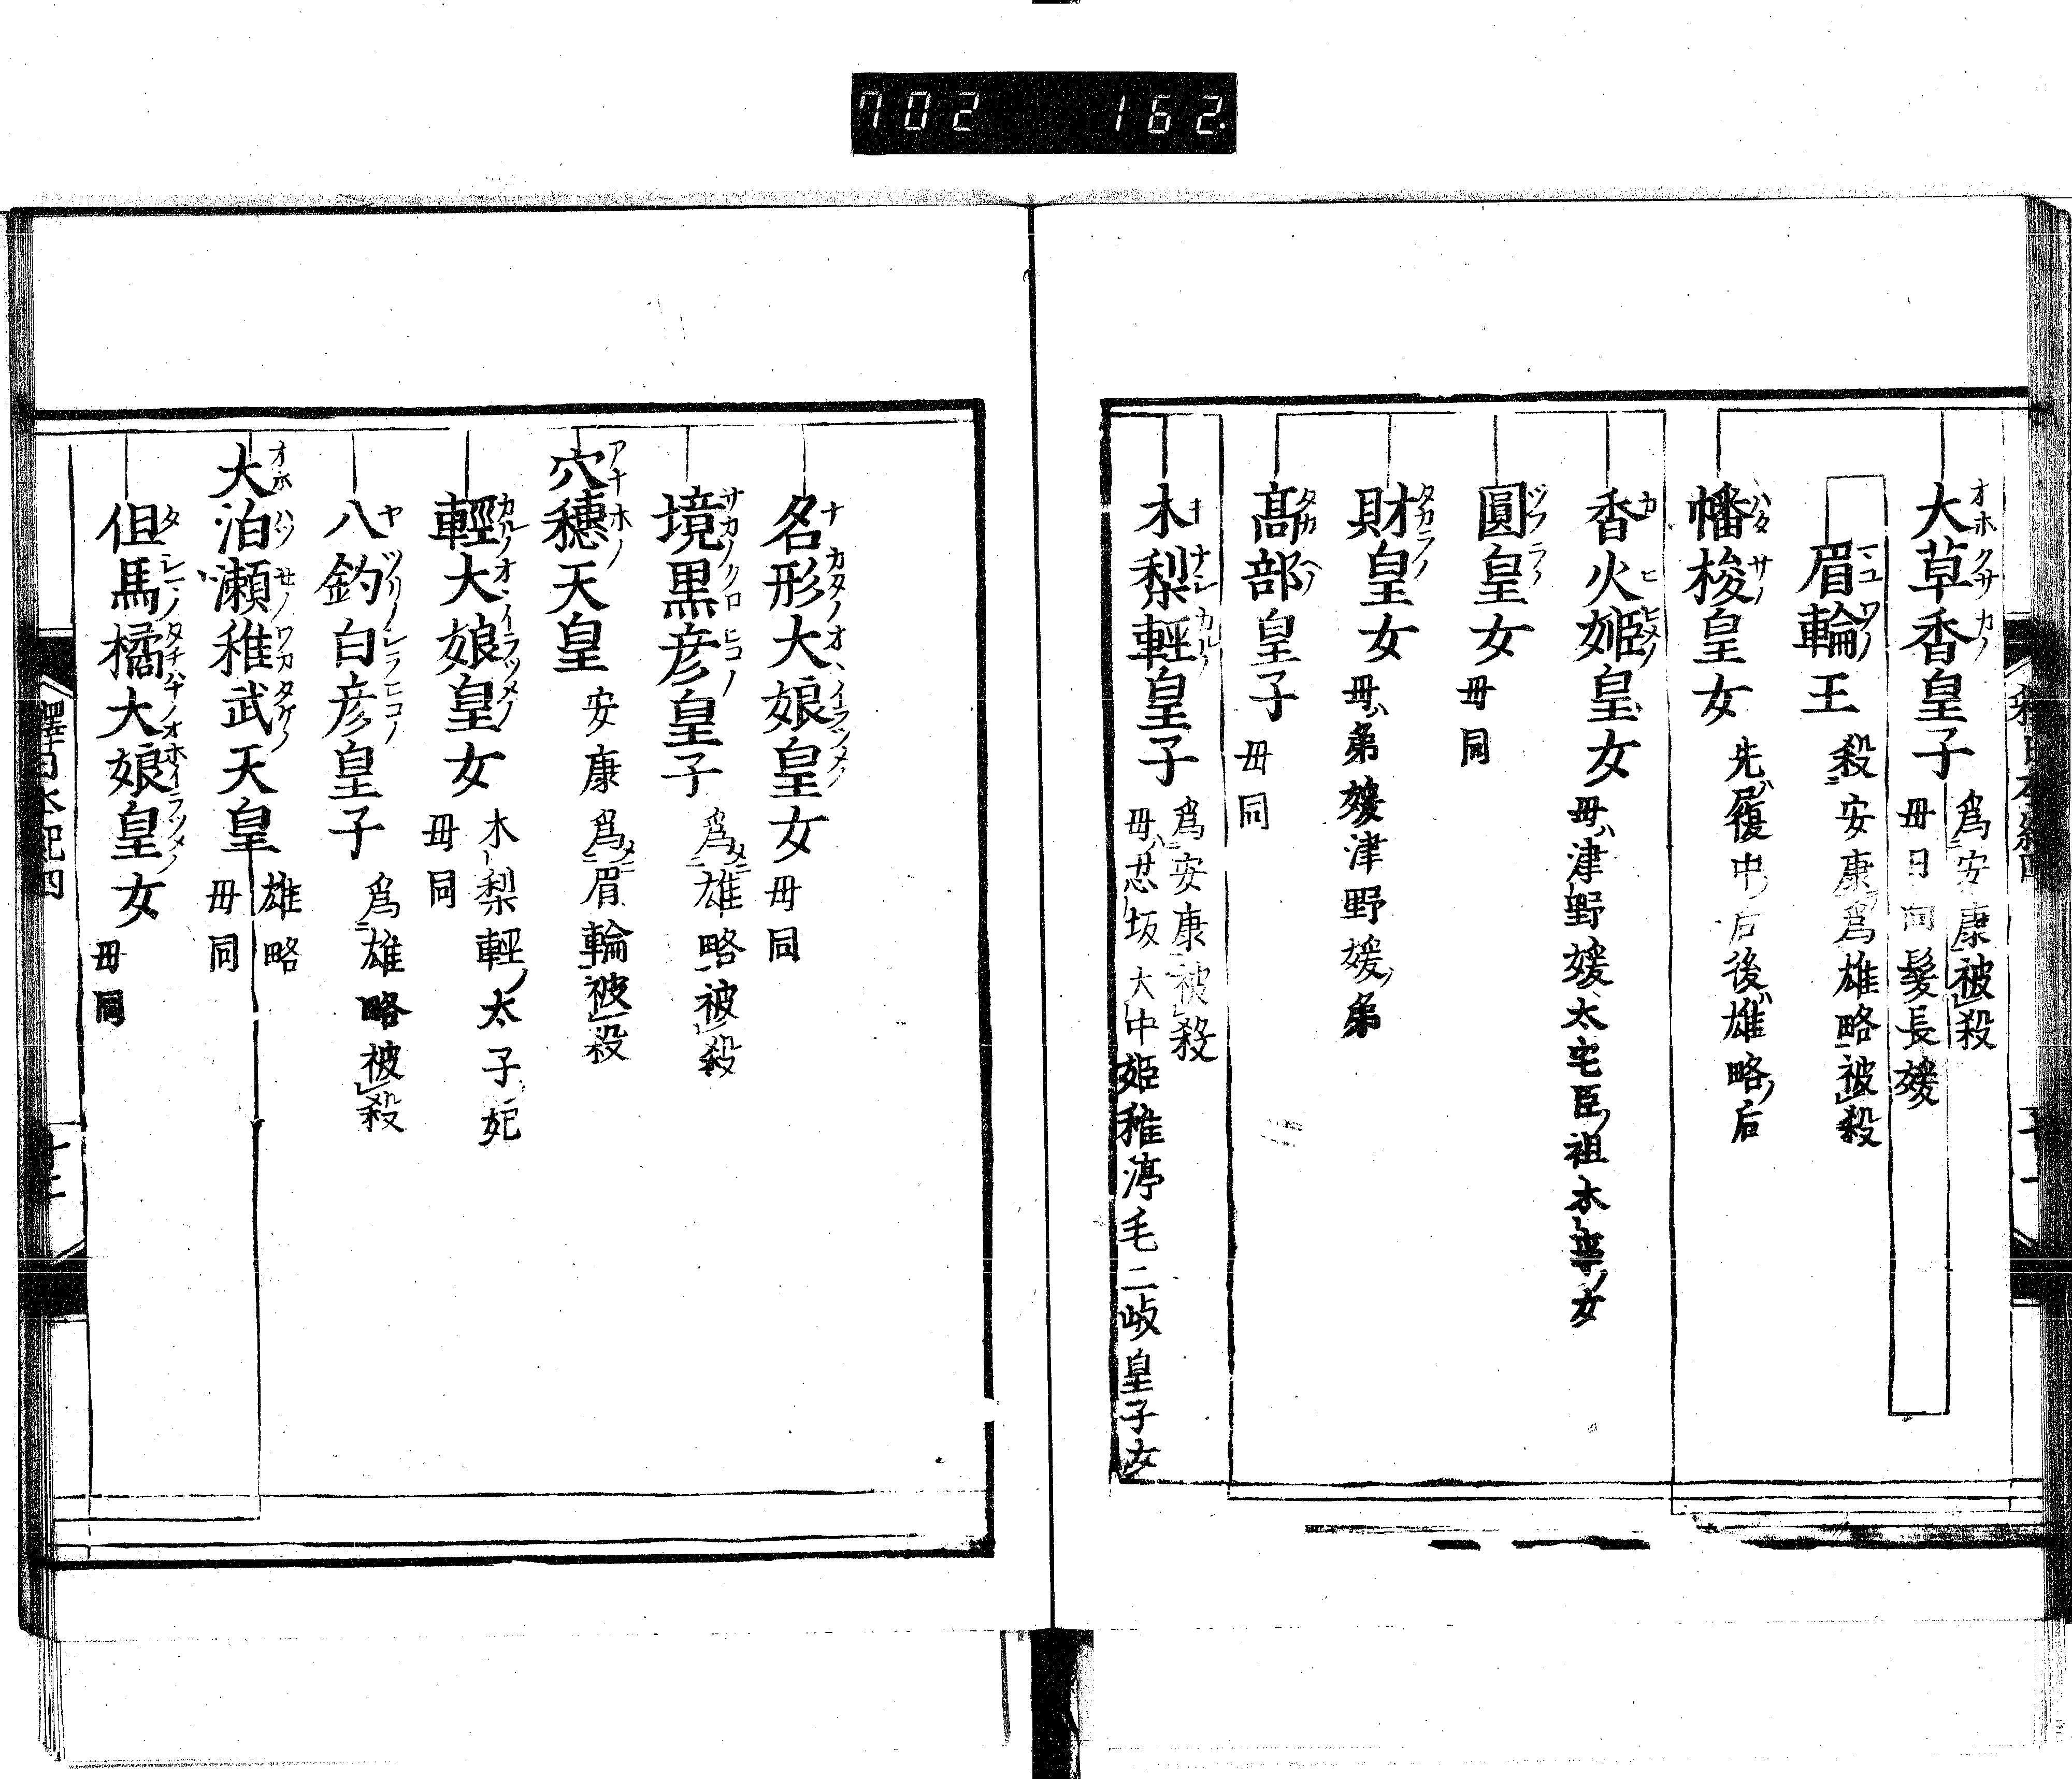 702 162.
大草香皇子 為安康被殺
母日向髪長媛
眉輪王 殺安康為雄略被殺
幡梭皇女 先履中后後雄略后
香火姫皇女 母津野媛太宅臣祖木事女
圓皇女 母同
財皇女 母弟媛津野媛弟
髙部皇子 母同
木梨輕皇子 為安康被殺
母忍坂大中姫稚渟毛二岐皇子女
名形大娘皇女 母同
境黒彦皇子 為雄略被殺
穴穂天皇 安康為眉輪被殺
輕大娘皇女 木梨輕太子妃
母同
八釣白彦皇子 為雄略被殺
大泊瀬稚武天皇 雄略
母同
但馬橘大娘皇女 母同